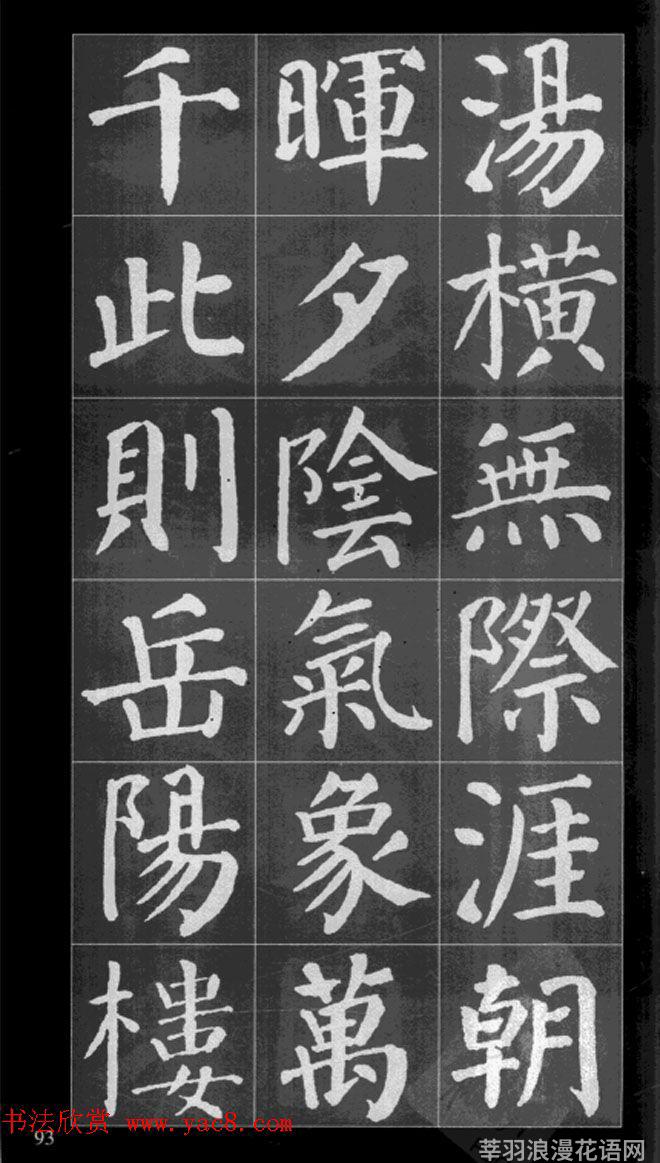 湯橫無際涯朝
暉夕陰氣象萬
千此則岳陽樓
书法欣赏 www.yac8.com
93
莘羽浪漫花语网